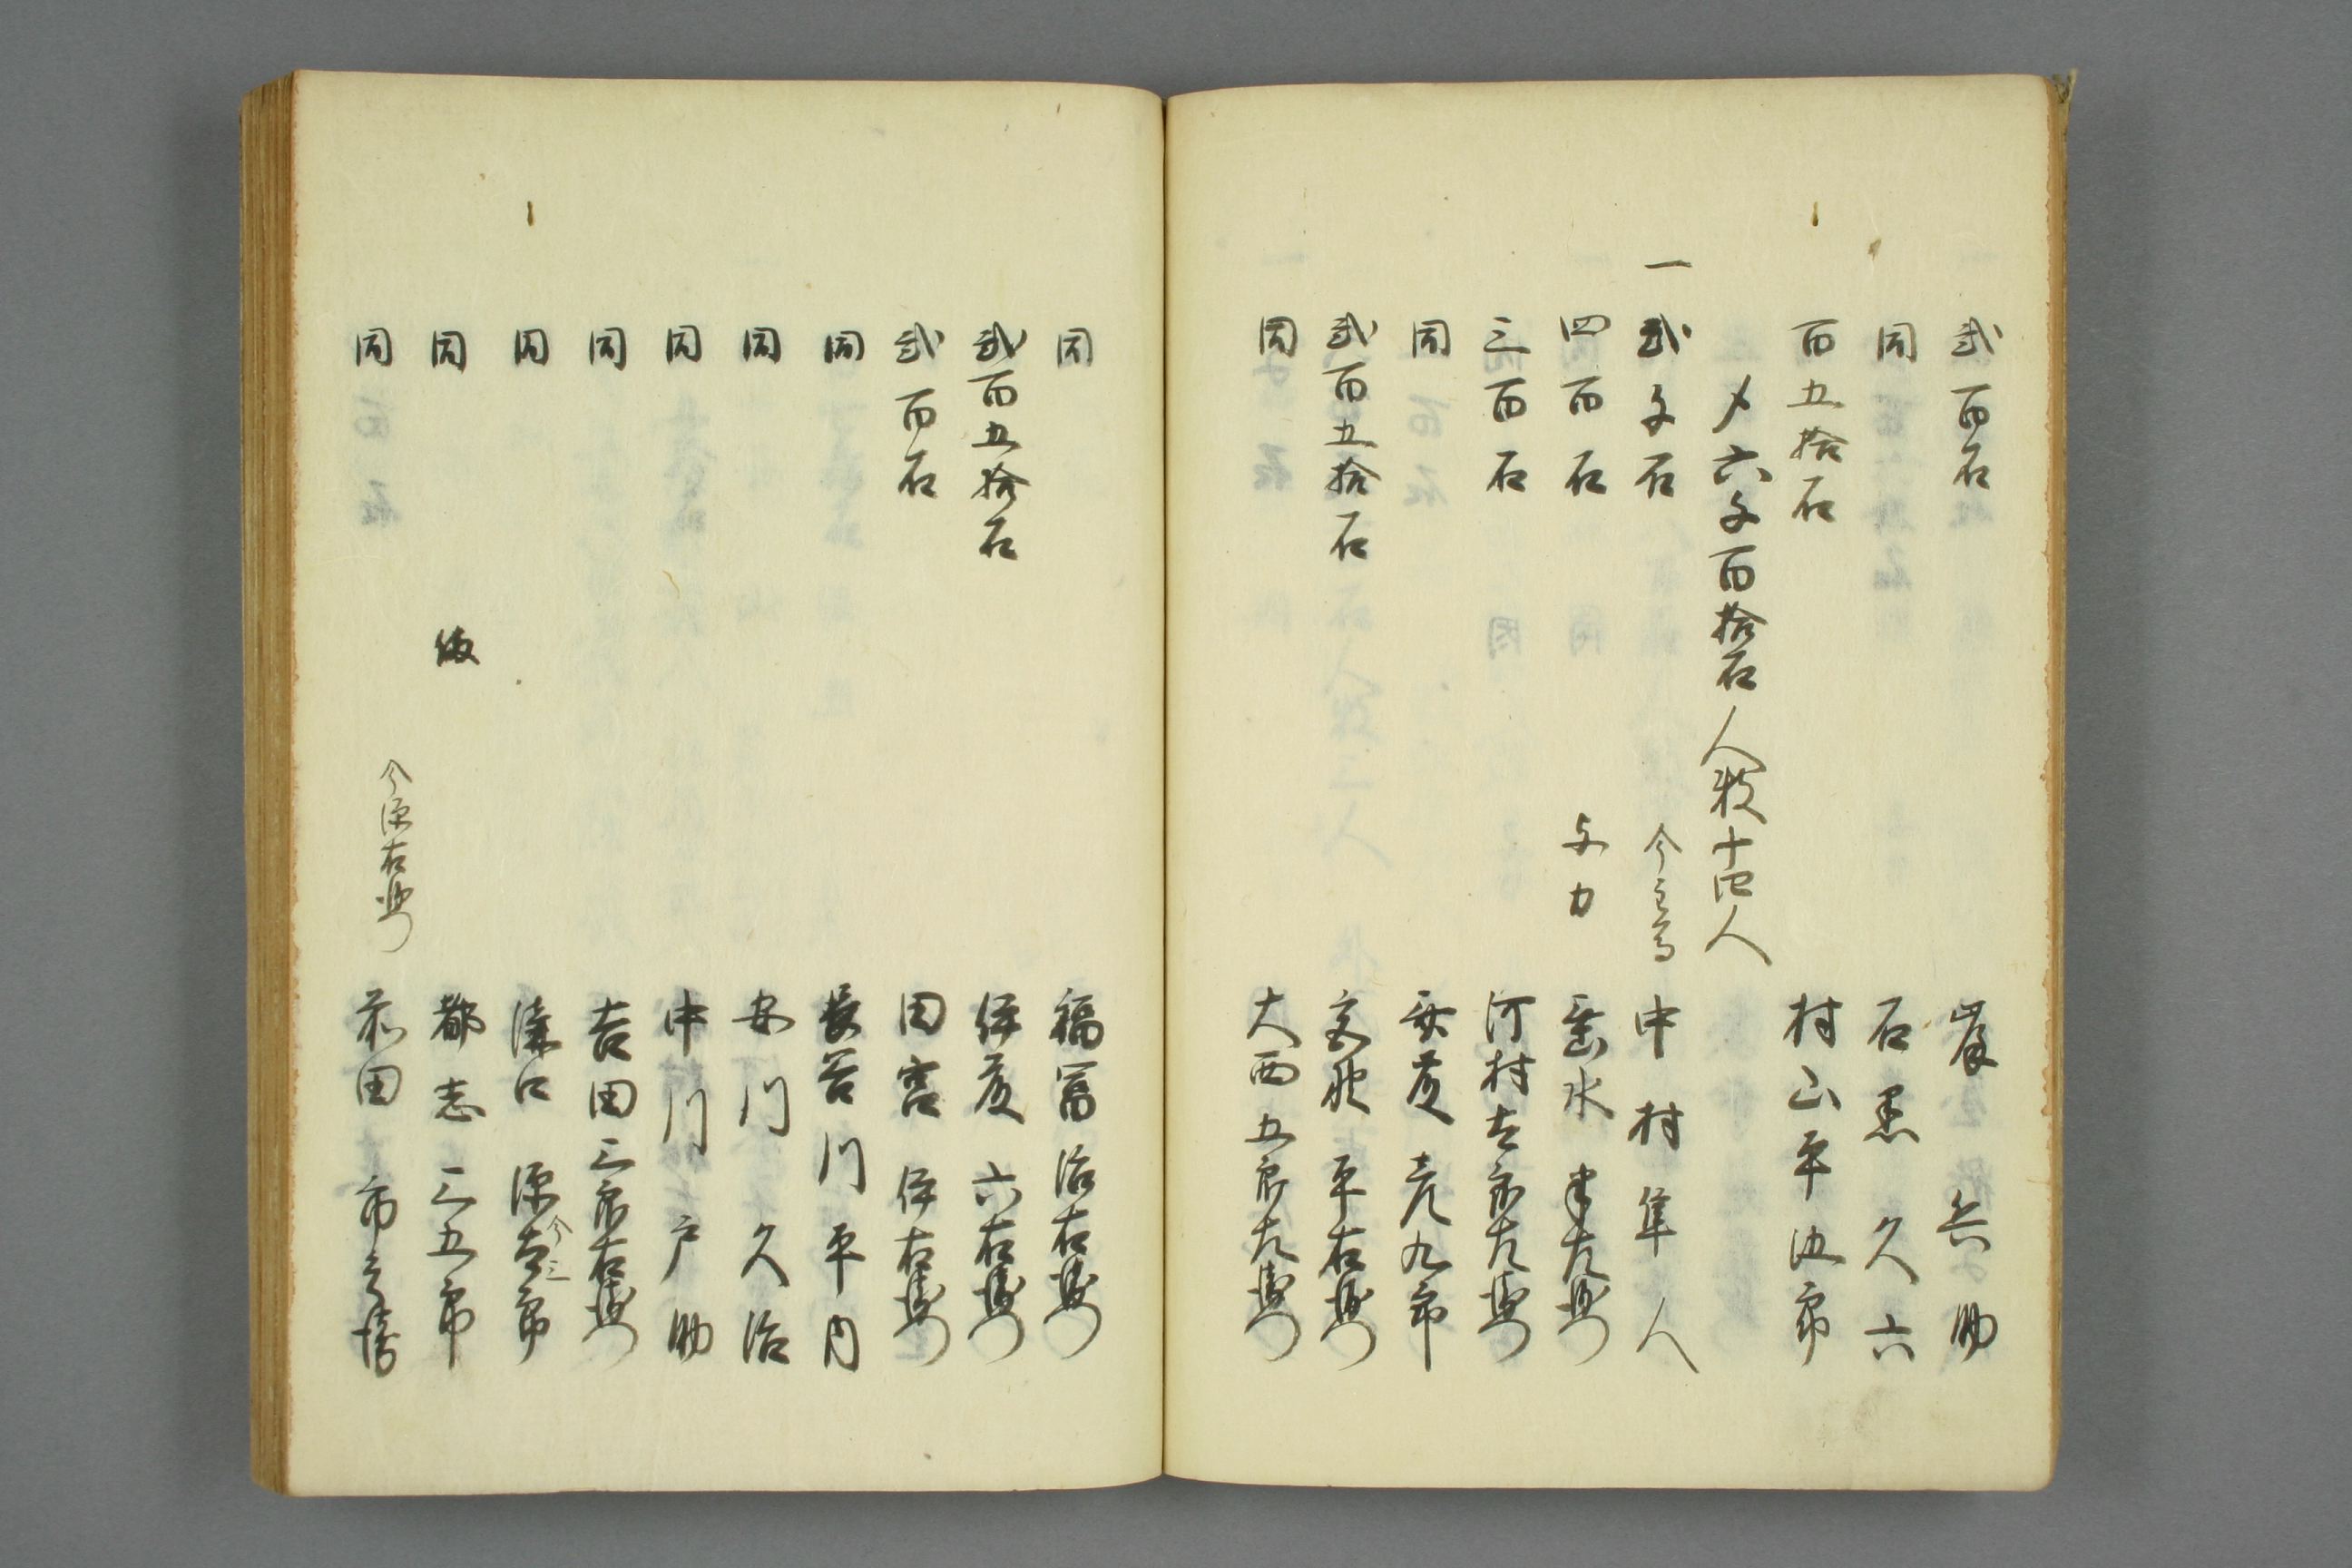 弐百石 岸 兵助
同 石黒久六
百五拾石 村山平次郎
〆六千百拾石 人数十四人
一 弐千石 今主馬 中村隼人
四百石 与力 垂水半左衛門
三百石 河村吉郎左衛門
同 安藤彦九郎
弐百五拾石 平右衛門
同 大西五郎左衛門
同 福冨治右衛門
弐百五拾石 伊藤六右衛門
弐百石 田宮伊右衛門
同 長谷川平内
同 安川久治
同 中川戸助
同 吉田三郎右衛門
同 溝口源吉郎 今三
同 都志三五郎
同 今源右衛門 前田市之